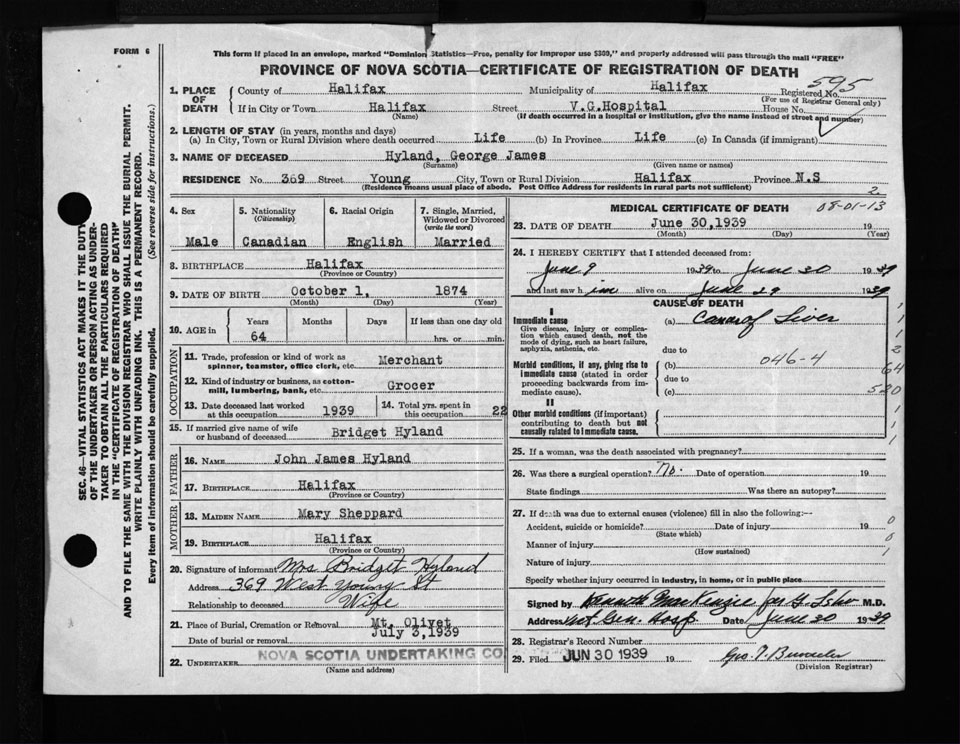 FORM 6
This form if placed in an envelope, marked "Dominion Statistics—Free, penalty for improper use $300," and properly addressed will pass through the mail "FREE"
PROVINCE OF NOVA SCOTIA—CERTIFICATE OF REGISTRATION OF DEATH
595
1. PLACE OF DEATH
County of Halifax Municipality of Halifax Registered No.
(For use of Registrar General only)
If in City or Town Halifax Street V.G.Hospital House No.
(Name) (If death occurred in a hospital or institution, give the name instead of street and number)
2. LENGTH OF STAY (in years, months and days)
(a) In City, Town or Rural Division where death occurred Life (b) In Province Life (c) In Canada (if immigrant)
3. NAME OF DECEASED Hyland, George James
(Surname) (Given name or names)
RESIDENCE No. 369 Street Young City, Town or Rural Division Halifax Province N.S
(Residence means usual place of abode. Post Office Address for residents in rural parts not sufficient)
2.
08-01-13
4. Sex Male
5. Nationality (Citizenship) Canadian
6. Racial Origin English
7. Single, Married, Widowed or Divorced (write the word) Married
8. BIRTHPLACE Halifax
(Province or Country)
9. DATE OF BIRTH October 1, 1874
(Month) (Day) (Year)
10. AGE in Years Months Days If less than one day old
64 hrs. or min.
OCCUPATION
11. Trade, profession or kind of work as spinner, teamster, office clerk, etc. Merchant
12. Kind of industry or business, as cotton-mill, lumbering, bank, etc. Grocer
13. Date deceased last worked at this occupation 1939
14. Total yrs. spent in this occupation 22
15. If married give name of wife or husband of deceased Bridget Hyland
FATHER
16. NAME John James Hyland
17. BIRTHPLACE Halifax
(Province or Country)
MOTHER
18. MAIDEN NAME Mary Sheppard
19. BIRTHPLACE Halifax
(Province or Country)
20. Signature of informant Mrs Bridget Hyland
Address 369 West Young St
Relationship to deceased Wife
21. Place of Burial, Cremation or Removal Mt. Olivet
Date of burial or removal July 3,1939
22. UNDERTAKER NOVA SCOTIA UNDERTAKING CO
(Name and address)
MEDICAL CERTIFICATE OF DEATH
23. DATE OF DEATH June 30,1939 19
(Month) (Day) (Year)
24. I HEREBY CERTIFY that I attended deceased from:
June 9 1939 to June 30 1939
and last saw him alive on June 29 1939
CAUSE OF DEATH
I
Immediate cause (a) of Liver
Give disease, injury or complication which caused death, not the mode of dying, such as heart failure, asphyxia, asthenia, etc.
due to
Morbid conditions, if any, giving rise to immediate cause (stated in order proceeding backwards from immediate).
(b) 046-4
due to
(c)
II
Other morbid conditions (if important) contributing to death but not causally related to immediate cause.
1
1
2
64
520
1
1
1
25. If a woman, was the death associated with pregnancy?
26. Was there a surgical operation? No. Date of operation 19
State findings Was there an autopsy?
27. If death was due to external causes (violence) fill in also the following:—
Accident, suicide or homicide? Date of injury 19
(State which)
Manner of injury
(How sustained)
Nature of injury
Specify whether injury occurred in industry, in home, or in public place
0
0
1
Signed by Kenneth MacKenzie M.D.
Address Vict Gen. Hosp. Date June 30 1939
28. Registrar's Record Number
29. Filed JUN 30 1939 19
(Division Registrar)
SEC. 46—VITAL STATISTICS ACT MAKES IT THE DUTY
OF THE UNDERTAKER OR PERSON ACTING AS UNDER-
TAKER TO OBTAIN ALL THE PARTICULARS REQUIRED
IN THE "CERTIFICATE OF REGISTRATION OF DEATH"
AND TO FILE THE SAME WITH THE DIVISION REGISTRAR WHO SHALL ISSUE THE BURIAL PERMIT.
WRITE PLAINLY WITH UNFADING INK. THIS IS A PERMANENT RECORD.
Every item of information should be carefully supplied. (See reverse side for instructions.)